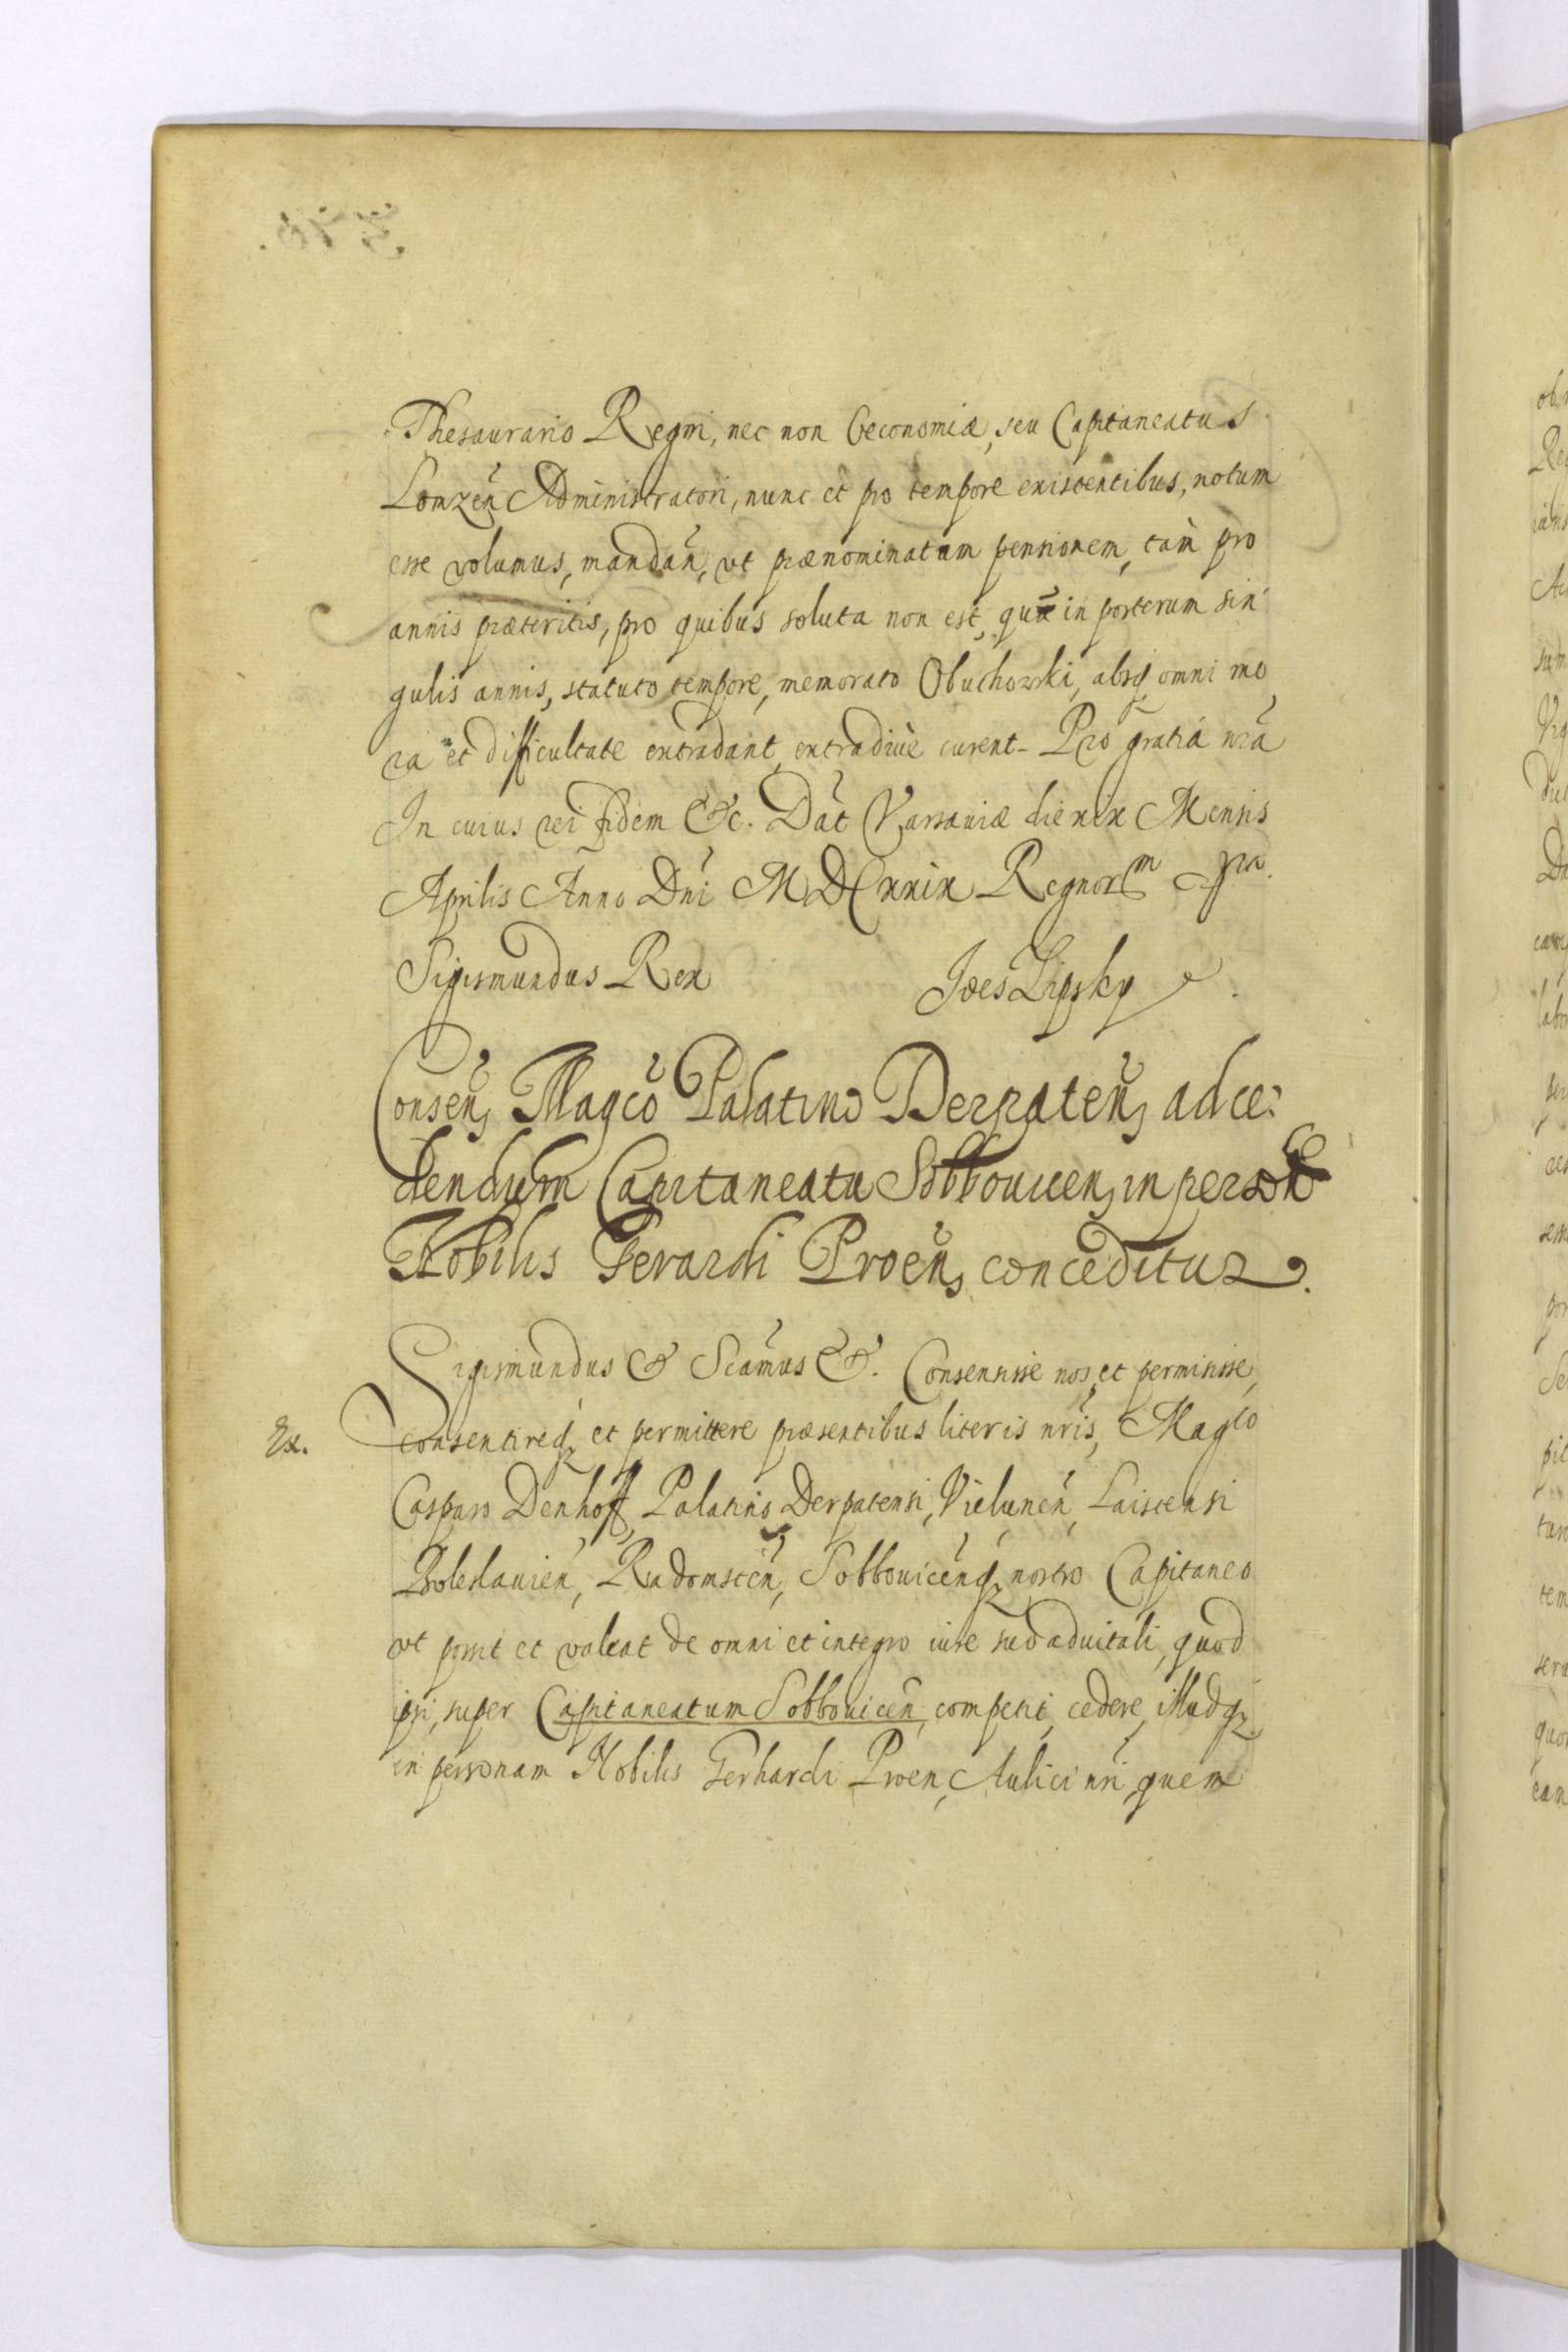 Thesaurario Regni, nec non Oeconomiæ, seu Capitaneatus
Lomzeñ Administratori, nunc et pro tempore existentibus, notum
esse volumus, mandañ, vt prænominatam pensionem, tam pro
annis præteritis, pro quibus soluta non est, quã in posterum sin
gulis annis, statuto tempore, memorato Obuchowski, absq omni mo
ra et difficultate extradant, extradiue curent. Pro gratiá nrã
In cuius rei fidem &c. Dat Varsauiæ die xix Mensis
Aprilis Anno Dni MDCxxix Regnorm
Sigismundus Rex Joes Lipsky
Conseñ Magco Palatino Derpateñ ad ce:
dendum Capitaneatu Sobbouiceñ in personã
Nobilis Gerardi Proeñ conceditur.
Sigismundus & Scamus &. Consensisse nos, et permisisse,
Ex.
consentireq et permittere præsentibus literis nris, Magco
Casparo Denhoff, Palatino Derpatensi, Vieluneñ, Laiscensi
Boleslauieñ, Radomsceñ, Sobbouiceñq nostro Capitaneo
vt possit et valeat de omni et integro iure suo aduitali, quod
ipsi, super Capitaneatum Sobbouiceñ, competit, cedere, illudq
in personam Nobilis Gerhardi Proen, Aulici nri, quem